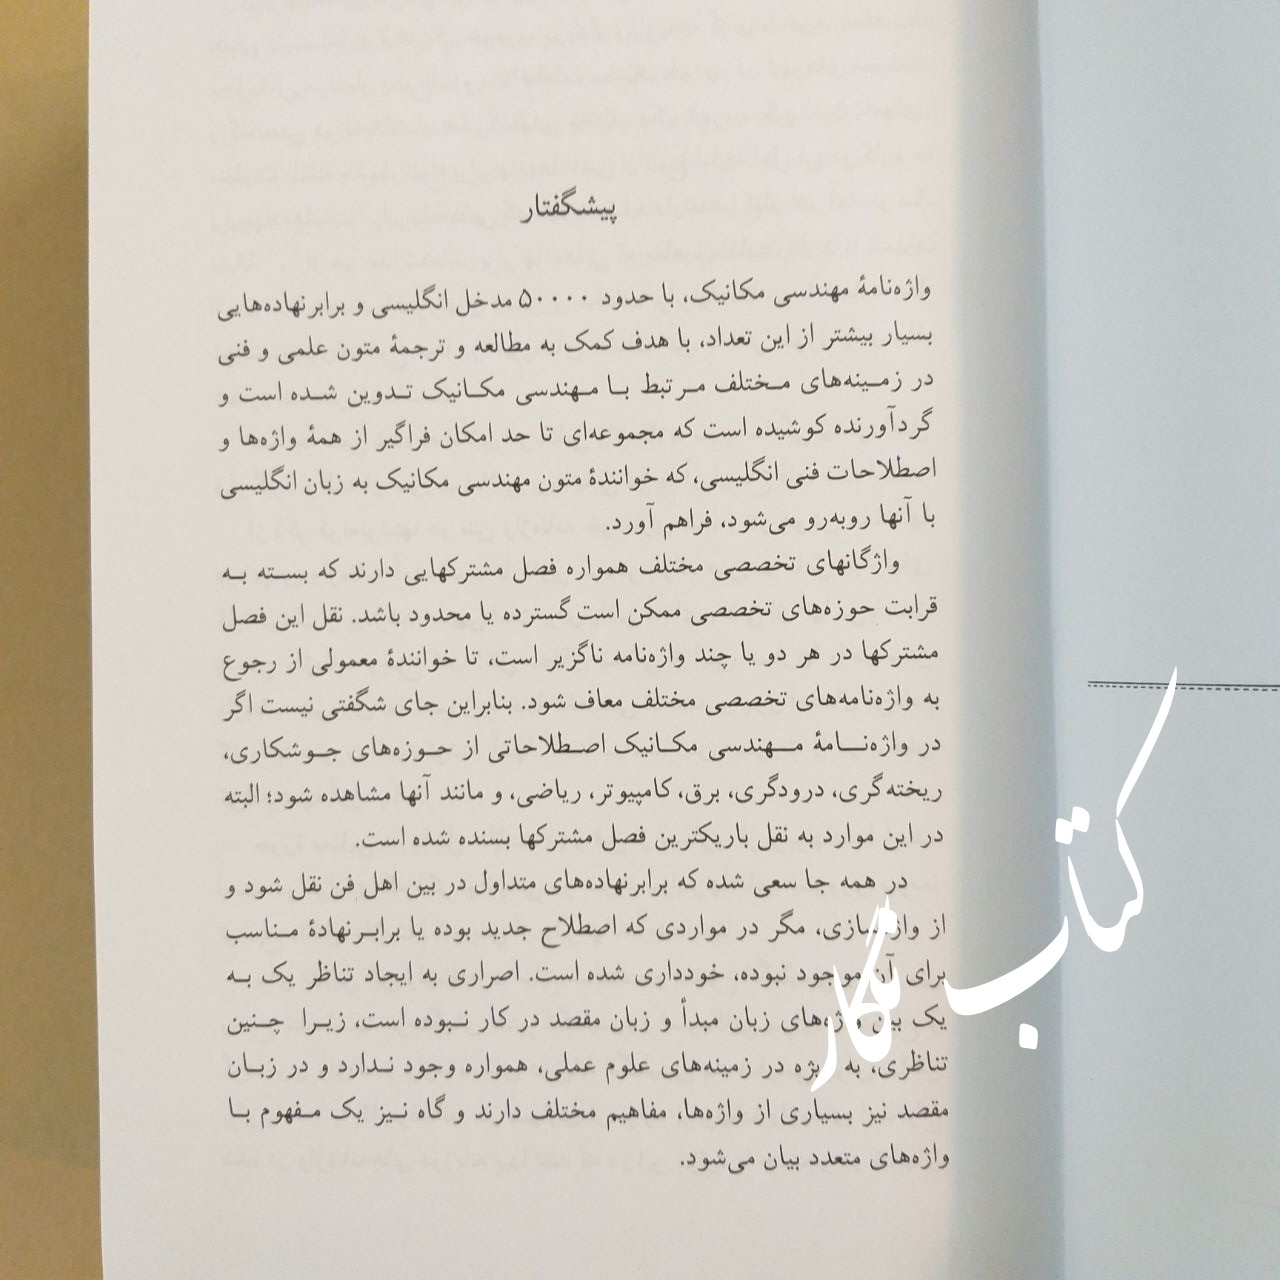 پیشگفتار
واژه‌نامهٔ مهندسی مکانیک، با حدود ۵۰۰۰۰ مدخل انگلیسی و برابرنهاده‌هایی
بسیار بیشتر از این تعداد، با هدف کمک به مطالعه و ترجمهٔ متون علمی و فنی
در زمینه‌های مختلف مرتبط با مهندسی مکانیک تدوین شده است و
گردآورنده کوشیده است که مجموعه‌ای تا حد امکان فراگیر از همهٔ واژه‌ها و
اصطلاحات فنی انگلیسی، که خوانندهٔ متون مهندسی مکانیک به زبان انگلیسی
با آنها روبه‌رو می‌شود، فراهم آورد.
واژگانهای تخصصی مختلف همواره فصل مشترکهایی دارند که بسته به
قرابت حوزه‌های تخصصی ممکن است گسترده یا محدود باشد. نقل این فصل
مشترکها در هر دو یا چند واژه‌نامه ناگزیر است، تا خوانندهٔ معمولی از رجوع
به واژه‌نامه‌های تخصصی مختلف معاف شود. بنابراین جای شگفتی نیست اگر
در واژه‌نامهٔ مهندسی مکانیک اصطلاحاتی از حوزه‌های جوشکاری،
ریخته‌گری، درودگری، برق، کامپیوتر، ریاضی، و مانند آنها مشاهده شود؛ البته
در این موارد به نقل باریکترین فصل مشترکها بسنده شده است.
در همه جا سعی شده که برابرنهاده‌های متداول در بین اهل فن نقل شود و
از واژه‌سازی، مگر در مواردی که اصطلاح جدید بوده یا برابرنهادهٔ مناسب
برای آن موجود نبوده، خودداری شده است. اصراری به ایجاد تناظر یک به
یک بین واژه‌های زبان مبدأ و زبان مقصد در کار نبوده است، زیرا چنین
تناظری، به ویژه در زمینه‌های علوم عملی، همواره وجود ندارد و در زبان
مقصد نیز بسیاری از واژه‌ها، مفاهیم مختلف دارند و گاه نیز یک مفهوم با
واژه‌های متعدد بیان می‌شود.
کتاب نگار